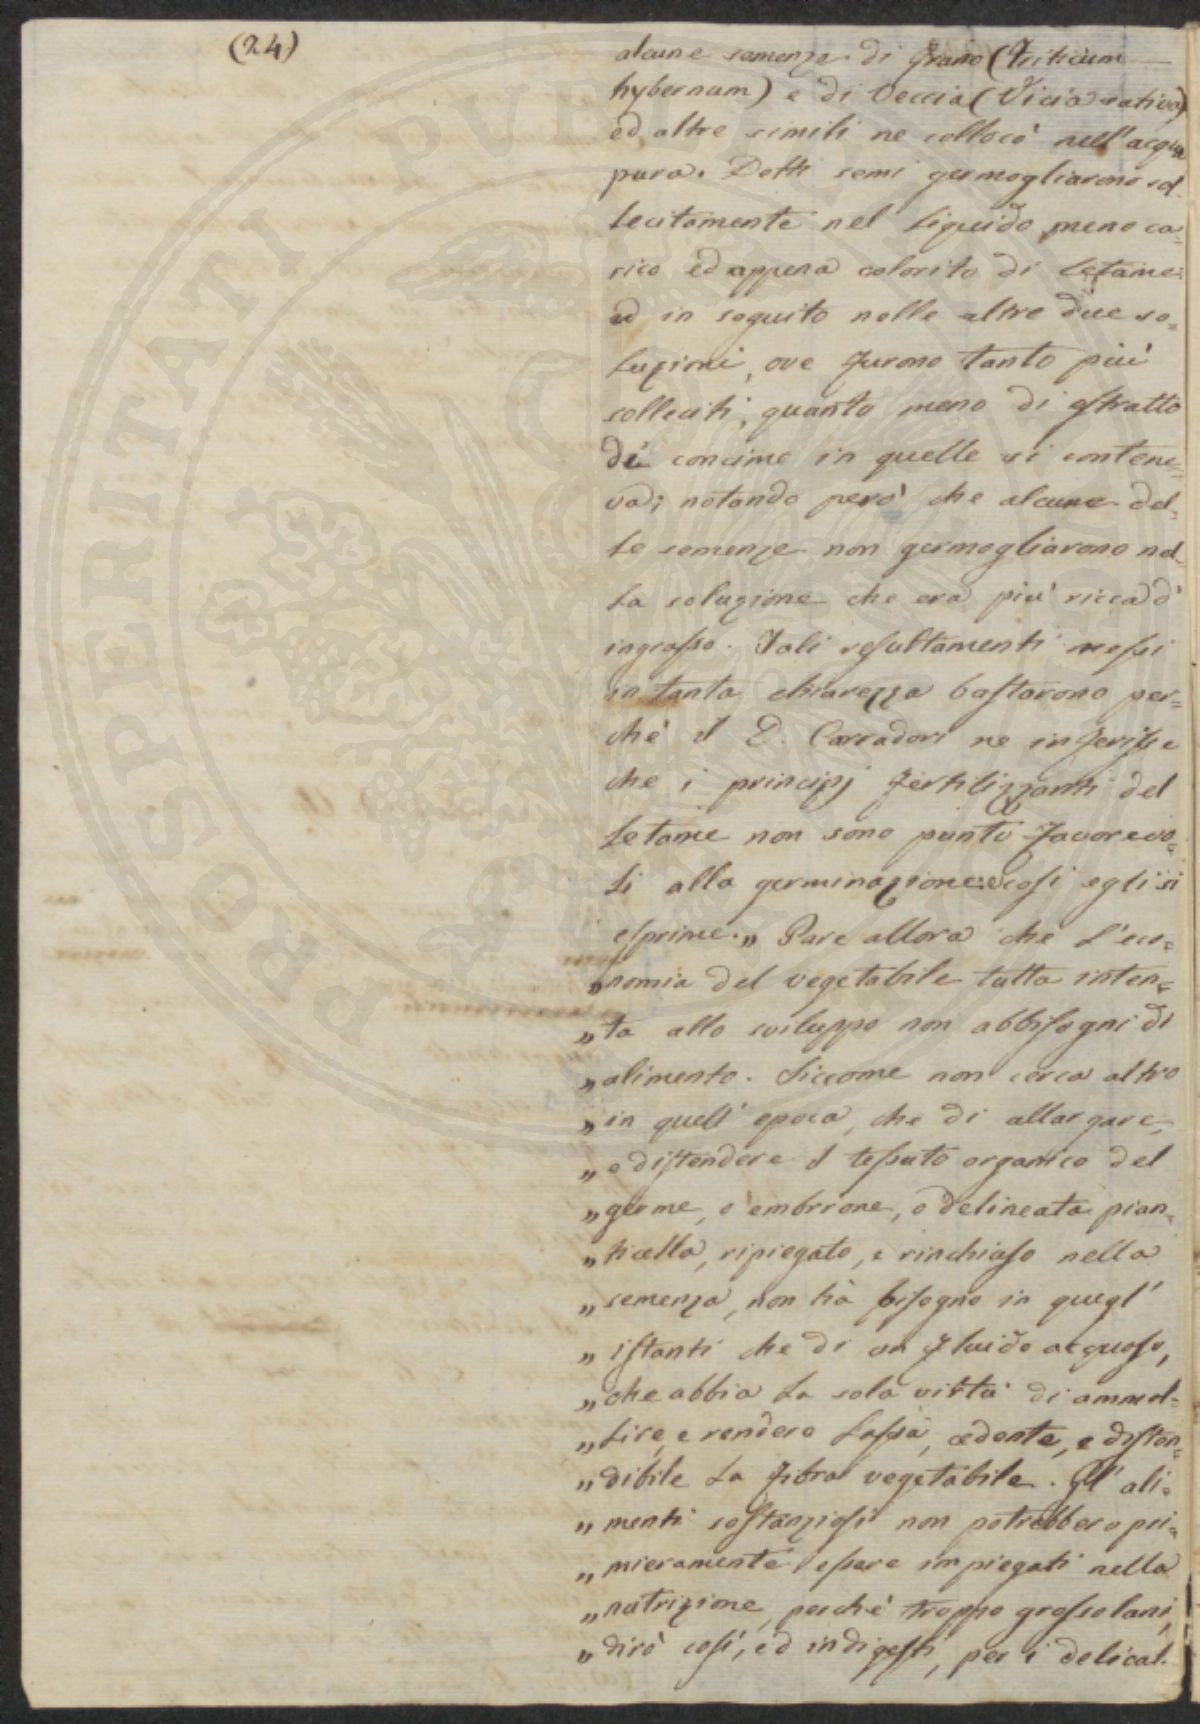 (24)
alcune semenze di Grano (Triticum
hybernum) e di Veccia (Vicia sativa)
ed altre simili ne collocò nell'acqua
pura. Detti semi germogliarono sol-
lecitamente nel liquido meno ca=
rico ed appena colorito di letame:
ed in seguito nelle altre due so=
luzioni, ove furono tanto più
solleciti, quanto meno di estratto
di concime in quelle si contene=
va; notando però che alcune del=
le semenze non germogliarono nel=
la soluzione che era più ricca d'
ingrasso. Tali resultamenti messi
in tanta chiarezza bastarono per=
chè il D. Carradori ne inferisse
che i principj fertilizzanti del
letame non sono punto favorevo=
li alla germinazione: e così egli si
esprime. „ Pare allora che l'eco=
„nomia del vegetabile tutta inten=
„ta allo sviluppo non abbisogni di
„alimento. Siccome non cerca altro
„in quell' epoca, che di allargare,
„e distendere il tessuto organico del
„germe, o embrione, o delineata pian=
„ticella, ripiegato, e rinchiuso nella
„semenza, non hà bisogno in quegl'
„istanti che di un fluido acquoso,
„che abbia la sola virtù di ammol=
„lire, e rendere lassa, cedente, e disten=
„dibile la fibra vegetabile. Gl' ali=
„menti sostanziosi non potrebbero pri=
„mieramente essere impiegati nella
„nutrizione, perchè troppo grossolani,
„dirò così, ed indigesti, per i delicat.
PROSPERITATI PUB